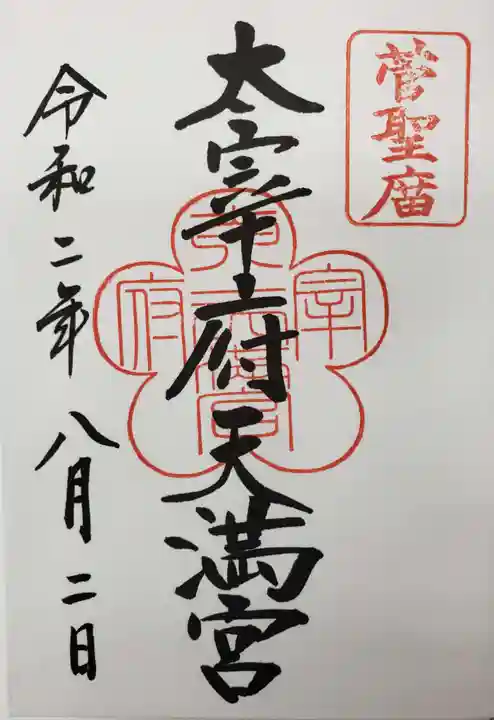 菅聖庿
太宰府天満宮
令和二年八月二日
宰
府